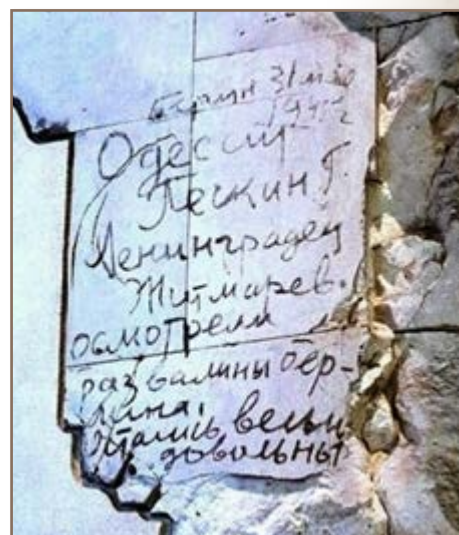 Берлин 31 мая
1945 г
Одессит
Пескин Г.
Ленинградец
Житмарев.
осмотрели
развалины бер-
лина.
Остались весьм
довольны